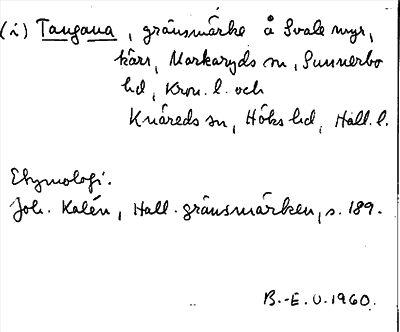 (i) Tangana, gränsmärke å Svale myr,
kärr, Markaryds sn, Sunnerbo
hd, Kron. l. och
Knäreds sn, Höks hd, Hall. l.
Etymologi.
Joh. Kalén, Hall. gränsmärken, s. 189.
B.-E. O. 1960.